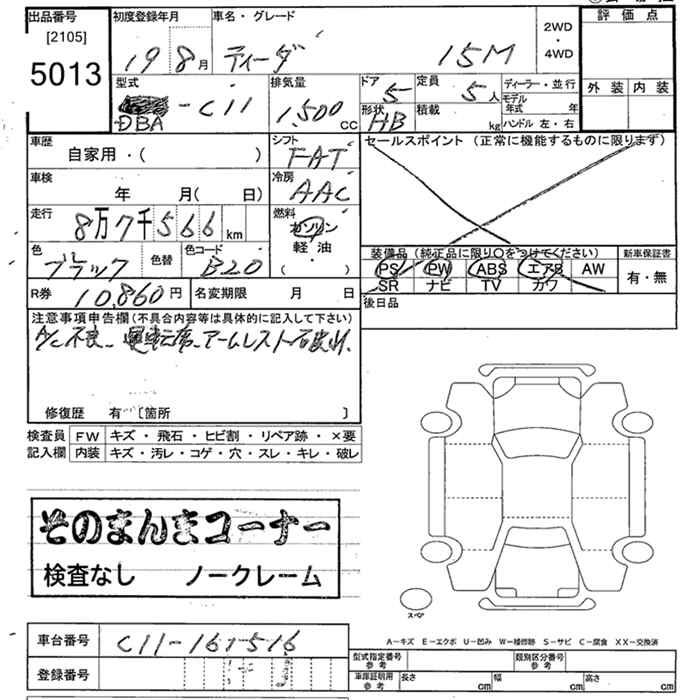 出品番号
[2105]
5013
初度登録年月
19 8月
車名・グレード
ティーダ 15M
2WD
・
4WD
評価点
外装 内装
型式
-C11
DBA
排気量
1,500 CC
ドア
5
形状
HB
定員
5人
積載
kg
ディーラー・並行
モデル
年式 年
ハンドル 左・右
車歴
自家用・( )
シフト
FAT
車検
年 月( 日)
冷房
AAC
走行
8万7千566 km
燃料
ガソリン
軽・油
( )
色
ブラック
色替
色コード
B20
R券 10,860円
名変期限 月 日
セールスポイント (正常に機能するものに限ります)
装備品(純正品に限り〇をつけてください)
PS PW ABS エアB AW
SR ナビ TV カワ
新車保証書
有・無
後日品
注意事項申告欄(不具合内容等は具体的に記入して下さい)
A/C不良、運転席アームレスト破れ
修復歴 有 〔箇所 〕
検査員 FW キズ・飛石・ヒビ割・リペア跡・×要
記入欄 内装 キズ・汚レ・コゲ・穴・スレ・キレ・破レ
そのまんまコーナー
検査なし ノークレーム
スペア
A-キズ E-エクボ U-凹み W-補修跡 S-サビ C-腐食 XX-交換済
車台番号 C11-161516
登録番号
型式指定番号
参考
類別区分番号
参考
車庫証明用
参考
長さ cm 幅 cm 高さ cm